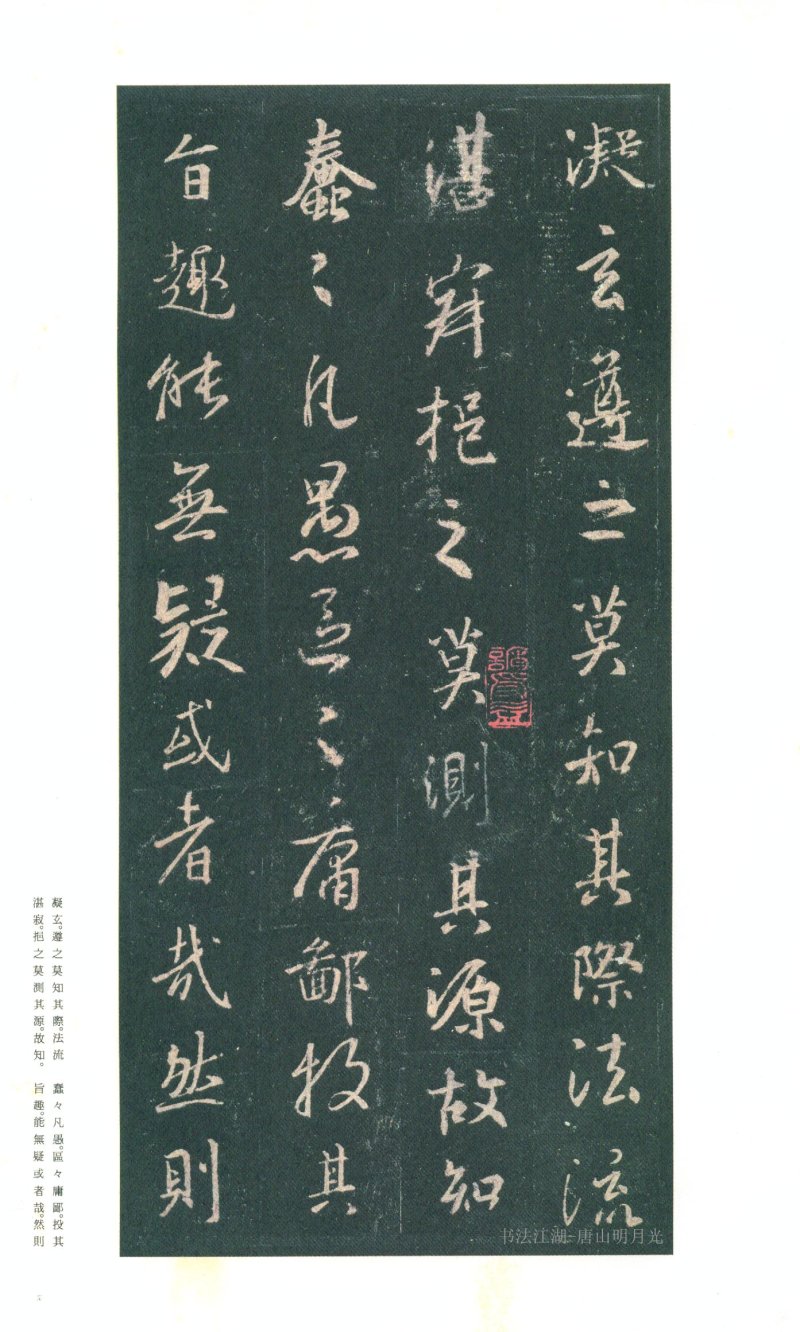 凝玄遵之莫知其際法流
湛寂挹之莫測其源故知
蠢々凡愚區々庸鄙投其
旨趣能無疑或者哉然則
凝玄。遵之莫知其際。法流
湛寂。挹之莫測其源。故知。
蠢々凡愚。區々庸鄙。投其
旨趣。能無疑或者哉。然則
书法江湖-唐山明月光